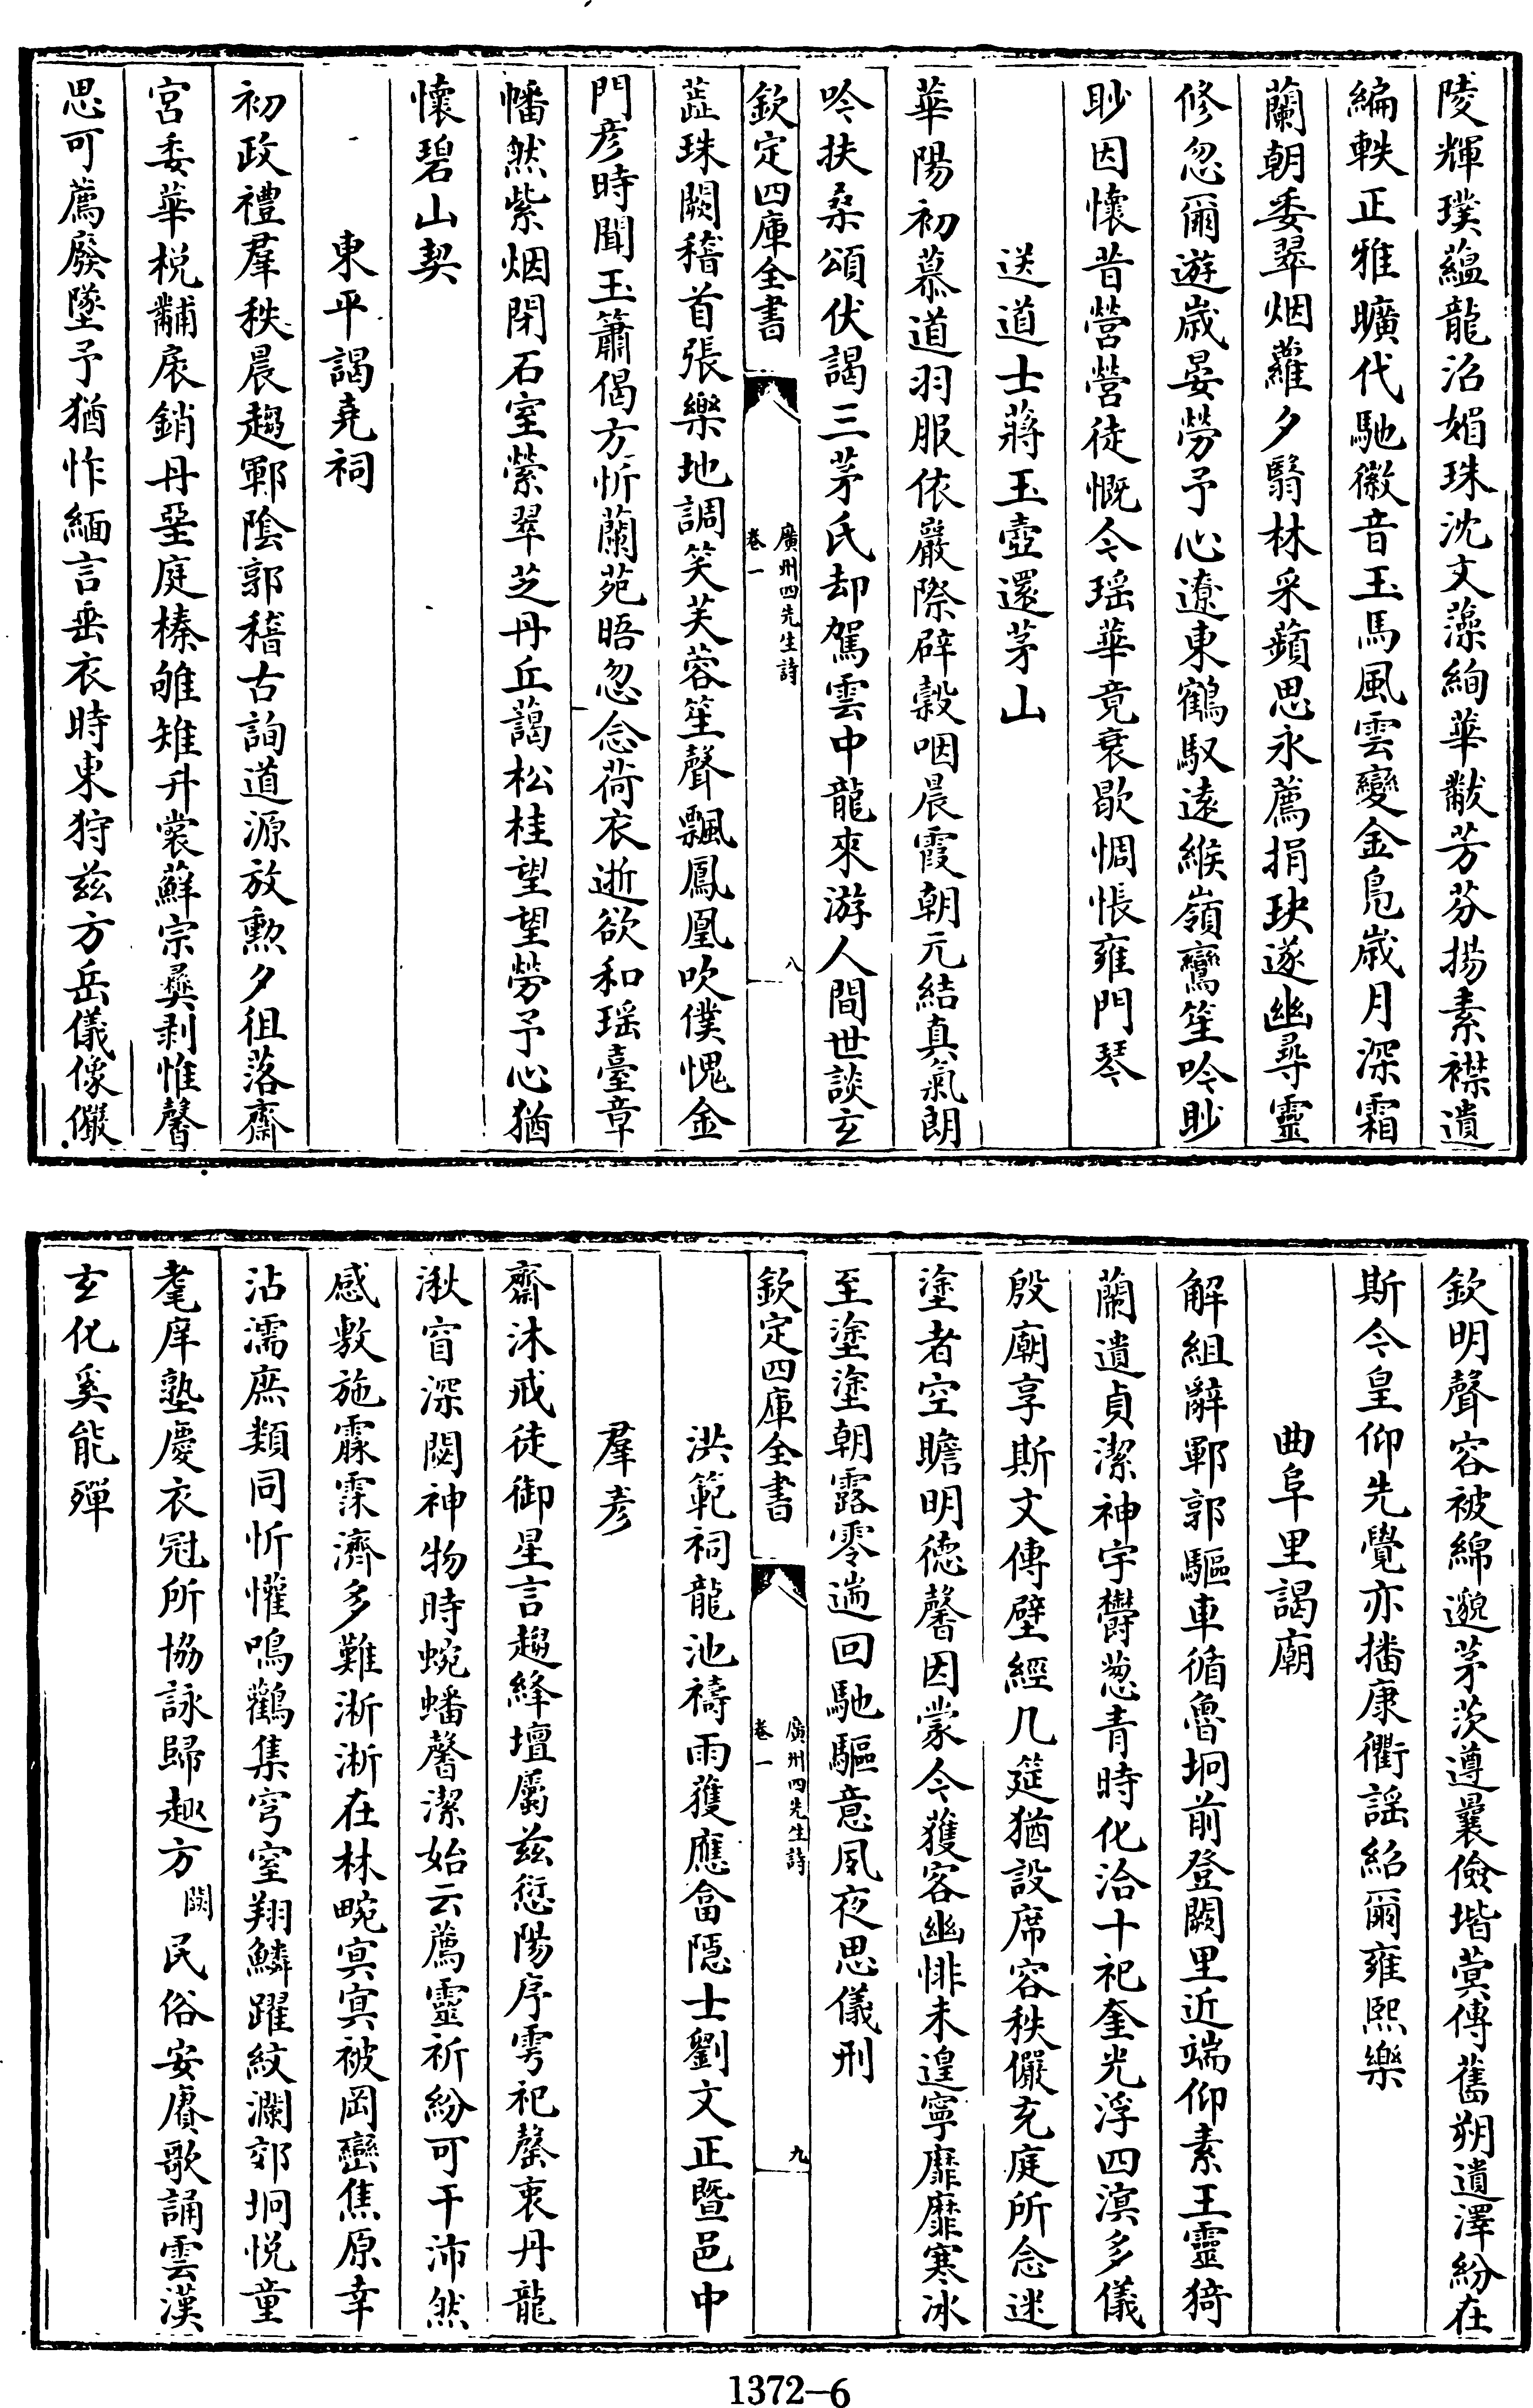 陵輝璞蘊龍沼媚珠沈文藻絢華黻芳芬揚素襟遺
編軼正雅曠代馳徽音玉馬風雲變金鳬歳月深霜
蘭朝委翠烟蘿夕翳林采蘋思永薦捐玦遂幽尋靈
修忽爾遊歲晏勞予心遼東鶴馭遠緱嶺鸞笙吟眇
眇因懷昔營營徒慨今瑶華竟衰歇惆悵雍門琴
送道士蔣玉壺還茅山
華陽初慕道羽服依巖際辟榖咽晨霞朝元結真氣朗
吟扶桑頌伏謁三茅氏却駕雲中龍來游人間世談玄
欽定四庫全書
廣州四先生詩
卷一
八
蕋珠闕稽首張樂地調笑芙蓉笙聲飄鳳凰吹僕愧金
門彦時聞玉簫偈方忻蘭苑晤忽念荷衣逝欲和瑶臺章
幡然紫烟閉石室縈翠芝丹丘藹松桂望望勞予心猶
懷碧山契
東平謁堯祠
初政禮羣秩晨趨鄆陰郭稽古詢道源放勲夕徂落齋
宮委華棁黼扆銷丹堊庭榛雊雉升裳蘚宗彞剥惟馨
思可薦廢墜予猶怍緬言垂衣時東狩兹方岳儀像儼
欽明聲容被綿邈茅茨遵曩儉堦蓂傳舊朔遺澤紛在
斯今皇仰先覺亦播康衢謡紹爾雍熙樂
曲阜里謁廟
解組辭鄆郭驅車循魯坰前登闕里近端仰素王靈猗
蘭遺貞潔神宇欝葱青時化洽十祀奎光浮四溟多儀
殷廟享斯文傳壁經几筵猶設席容秩儼充庭所念迷
塗者空瞻明徳馨因蒙今獲客幽悱未遑寧靡靡寒冰
至塗塗朝露零遄回馳驅意夙夜思儀刑
欽定四庫全書
廣州四先生詩
卷一
九
洪範祠龍池禱雨獲應畣隱士劉文正暨邑中
羣彦
齋沐戒徒御星言趨絳壇屬兹愆陽序雩祀罄衷丹龍
湫窅深閟神物時蜿蟠馨潔始云薦靈祈紛可干沛然
感敷施霡霂濟多難淅淅在林畹㝠㝠被岡巒焦原幸
沾濡庶類同忻懽鳴鸛集穹窒翔鱗躍紋瀾郊坰悦童
耄庠塾慶衣冠所協詠歸趣方闕民俗安賡歌誦雲漢
玄化奚能殫
1372-6